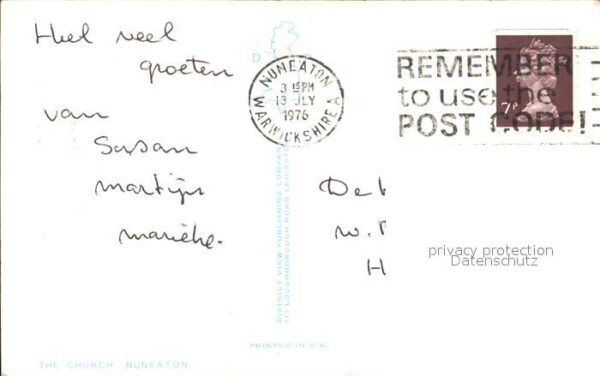 Heel veel
groeten
van
Susan
martijn
marieke.
NUNEATON
3 15 PM
13 JLY
1976
WARWICKSHIRE A
REMEMBER
to use the
POST CODE!
7P
DISTRICT VIEW PUBLISHING COMPANY
LOUGHBOROUGH ROAD LEICESTER
PRINTED IN U.K.
THE CHURCH, NUNEATON
W.
H
privacy protection
Datenschutz